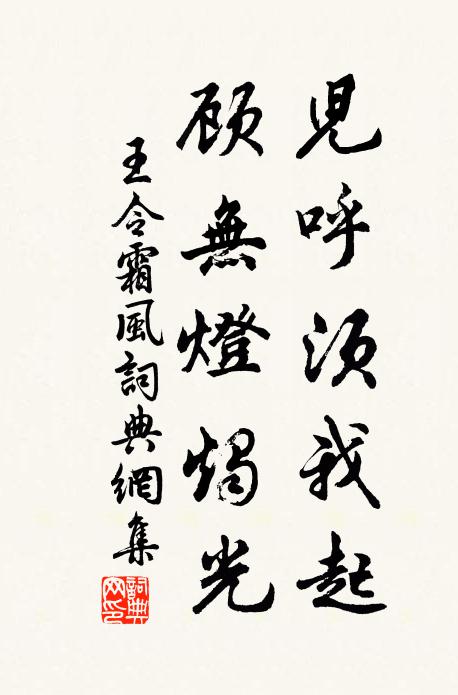 兒呼須我起
顧無燈燭光
王令霜風詞典網集
詞典
网印